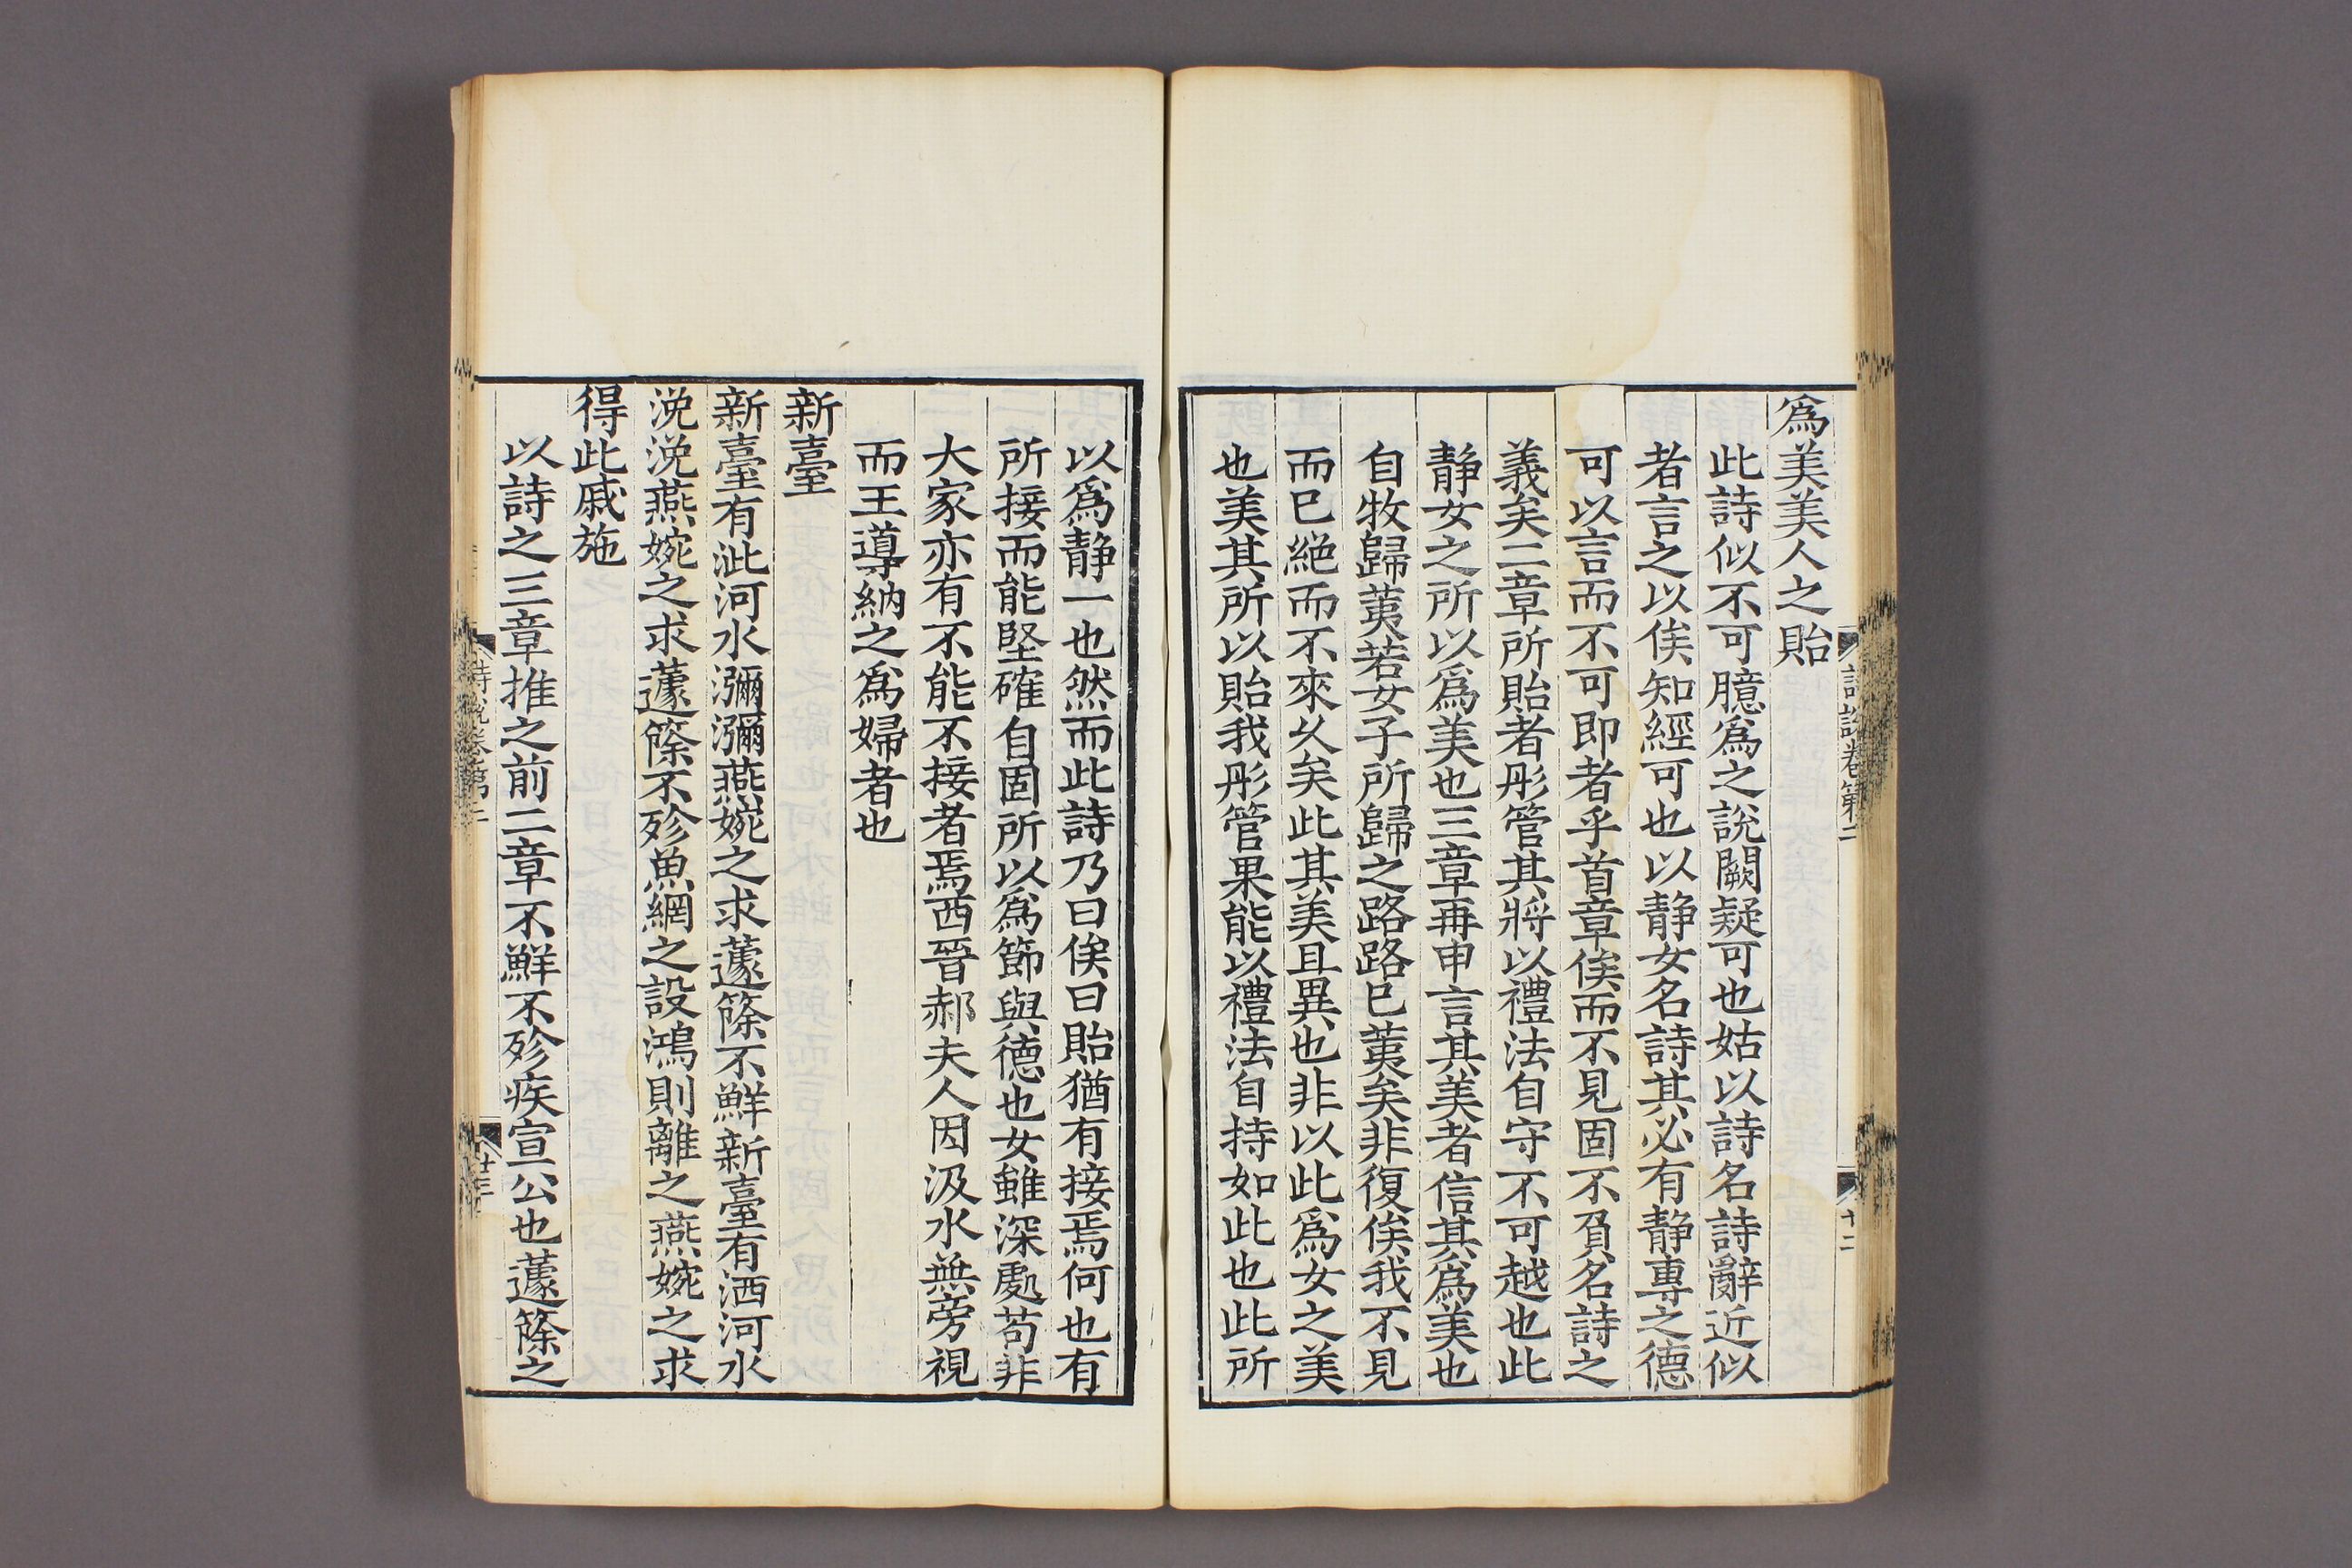 爲美美人之貽
此詩似不可臆爲之說闕疑可也姑以詩名詩辭近似
者言之以俟知經可也以静女名詩其必有静專之德
可以言而不可即者乎首章俟而不見固不負名詩之
義矣二章所貽者彤管其將以禮法自守不可越也此
静女之所以爲美也三章再申言其美者信其爲美也
自牧歸荑若女子所歸之路路巳荑矣非復俟我不見
而巳絕而不來乆矣此其美且異也非以此爲女之美
也美其所以貽我彤管果能以禮法自持如此也此所
詩說卷第二
十二
以爲静一也然而此詩乃曰俟曰貽猶有接焉何也有
所接而能堅確自固所以爲節與德也女雖深處苟非
大家亦有不能不接者焉西晉郝夫人因汲水無旁視
而王導納之爲婦者也
新臺
新臺有泚河水瀰瀰燕婉之求蘧篨不鮮新臺有洒河水
浼浼燕婉之求蘧篨不殄魚網之設鴻則離之燕婉之求
得此戚施
以詩之三章推之前二章不鮮不殄疾宣公也蘧篨之
詩說卷第二